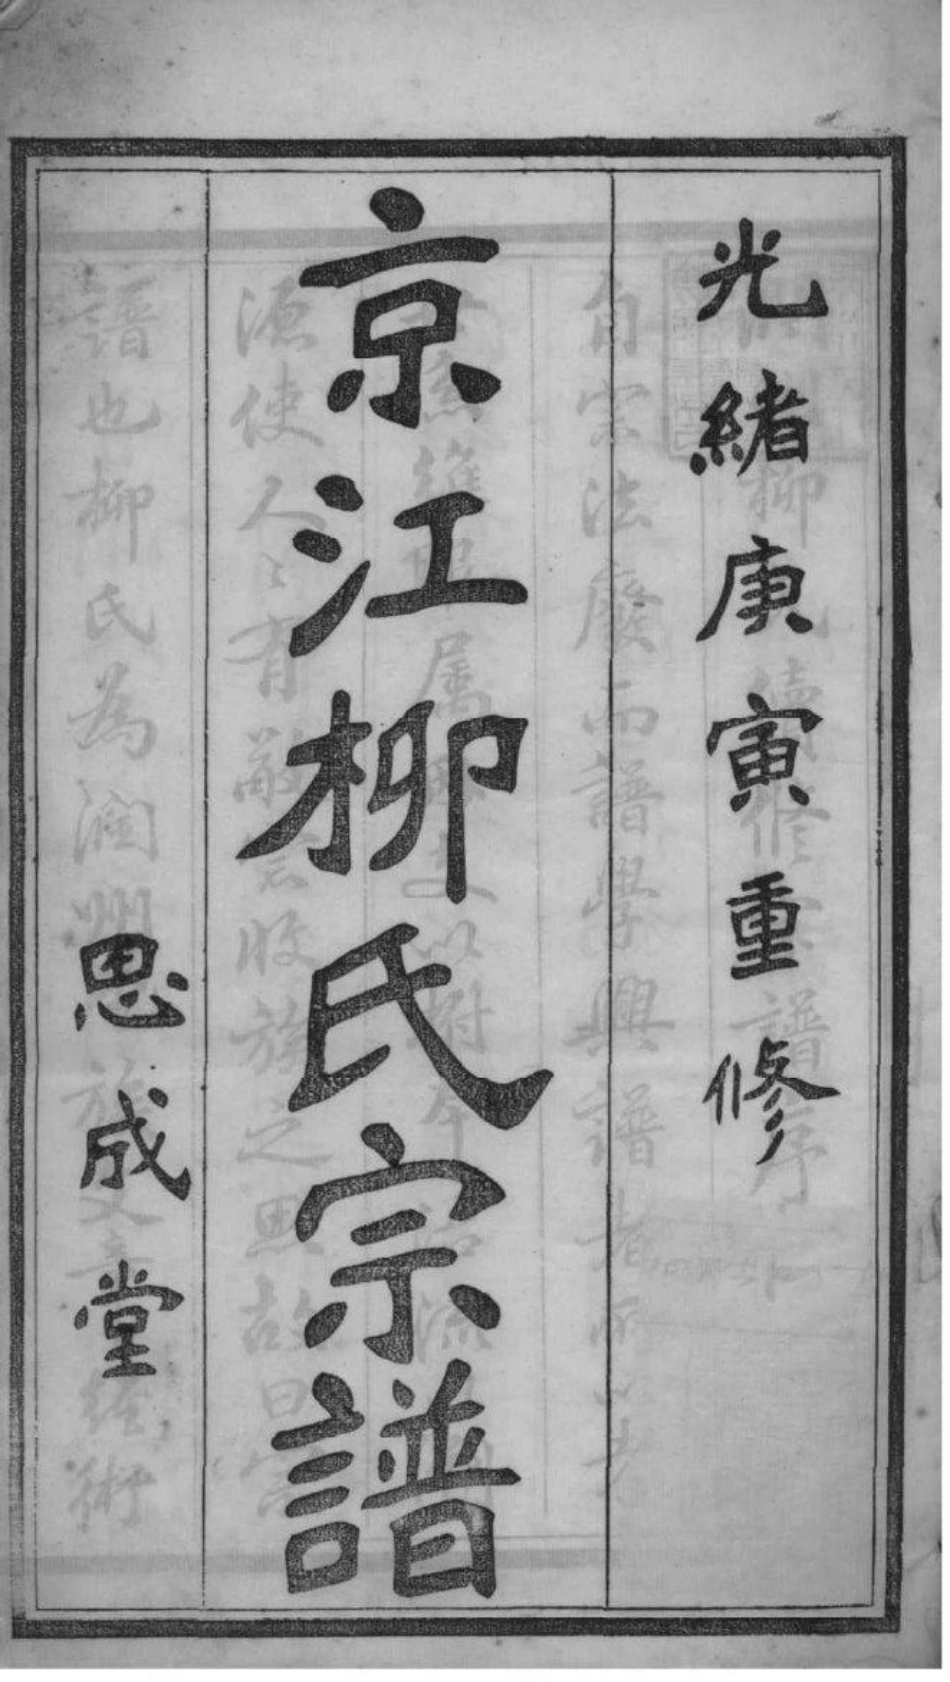 光緒庚寅重修
京江柳氏宗譜
思成堂